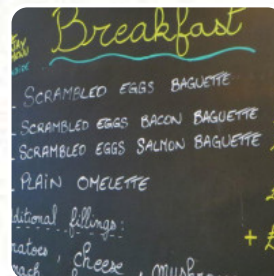 Breakfast
- SCRAMBLED EGGS BAGUETTE
- SCRAMBLED EGGS BACON BAGUETTE
- SCRAMBLED EGGS SALMON BAGUETTE
- PLAIN OMELETTE
ditional fillings:
+ £
matoes, cheese
mushro